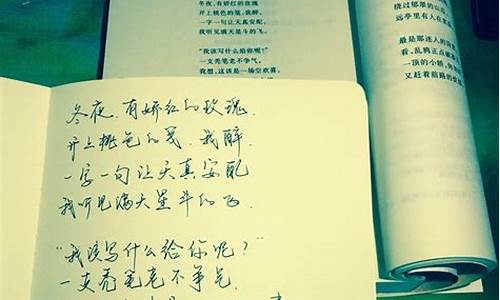 冬夜、有娇红的玫瑰
开上桃色的笺、我醉、
一字一句让天真安配
我听见满天星斗的飞
“我该写什么给你呢？”
一支秃笔老不争气、
冬夜、有娇红的玫瑰
开上桃色的笺，我醉，
一字一句让天真安配，
我听见满天星斗的飞。
“我该写什么给你呢？”
一支秃笔老不争气。
我想，这该是一场空欢喜，
绕过郁翠的山
远亭里有人在
最是那迷人的
看，乱鸦正点
一顶的小轿，
又赶着前路的